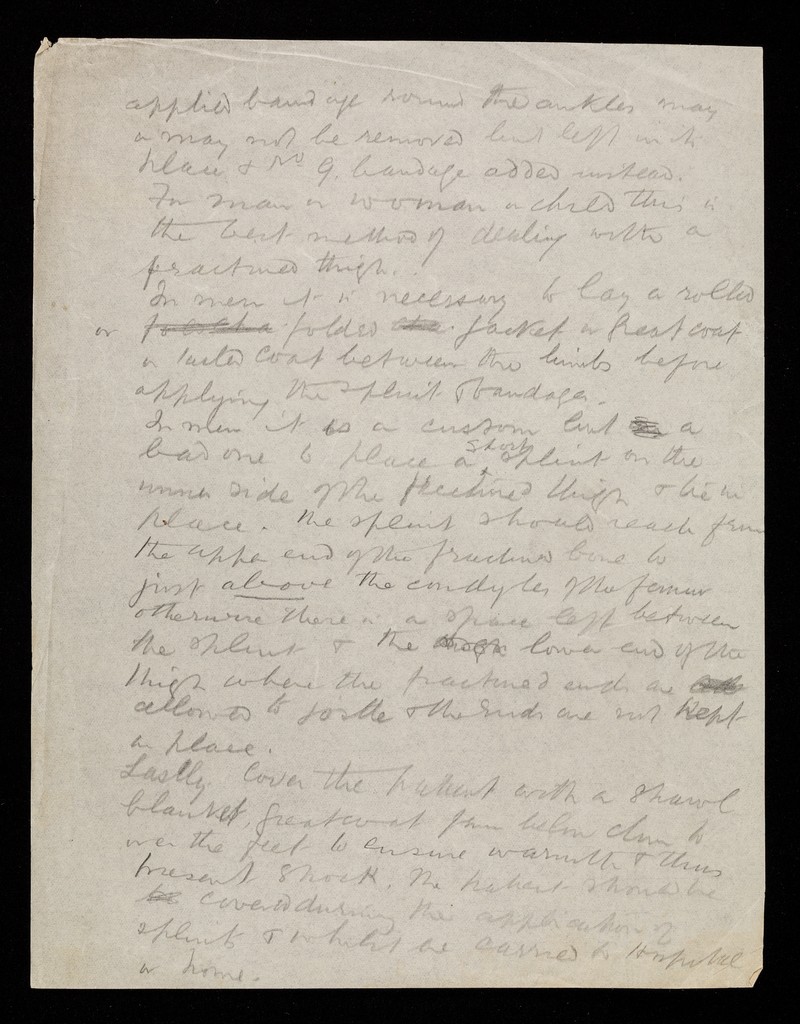 applied bandage round the ankles may
or may not be removed but left in its
place & No 9. bandage added instead.
For man or woman or child this is
the best method of dealing with a
fractured thigh.
In men it is necessary to lay a rolled
or folded jacket or great coat
or coat between the limbs before
applying the splint & bandages.
In men it is a custom but a
bad one to place a short splint on the
inner side of the fractured thigh & tie in
place. The splint should reach from
the upper end of the fractured bone to
just above the condyles of the femur
otherwise there is a space left between
the splint & the lower end of the
thigh where the fractured ends are
allowed to jostle & the ends are not kept
in place.
Lastly cover the patient with a shawl
blanket, greatcoat from below chin to
over the feet to ensure warmth & thus
prevent shock. The patient should be
covered during the application of
splints & whilst being carried to hospital
or home.